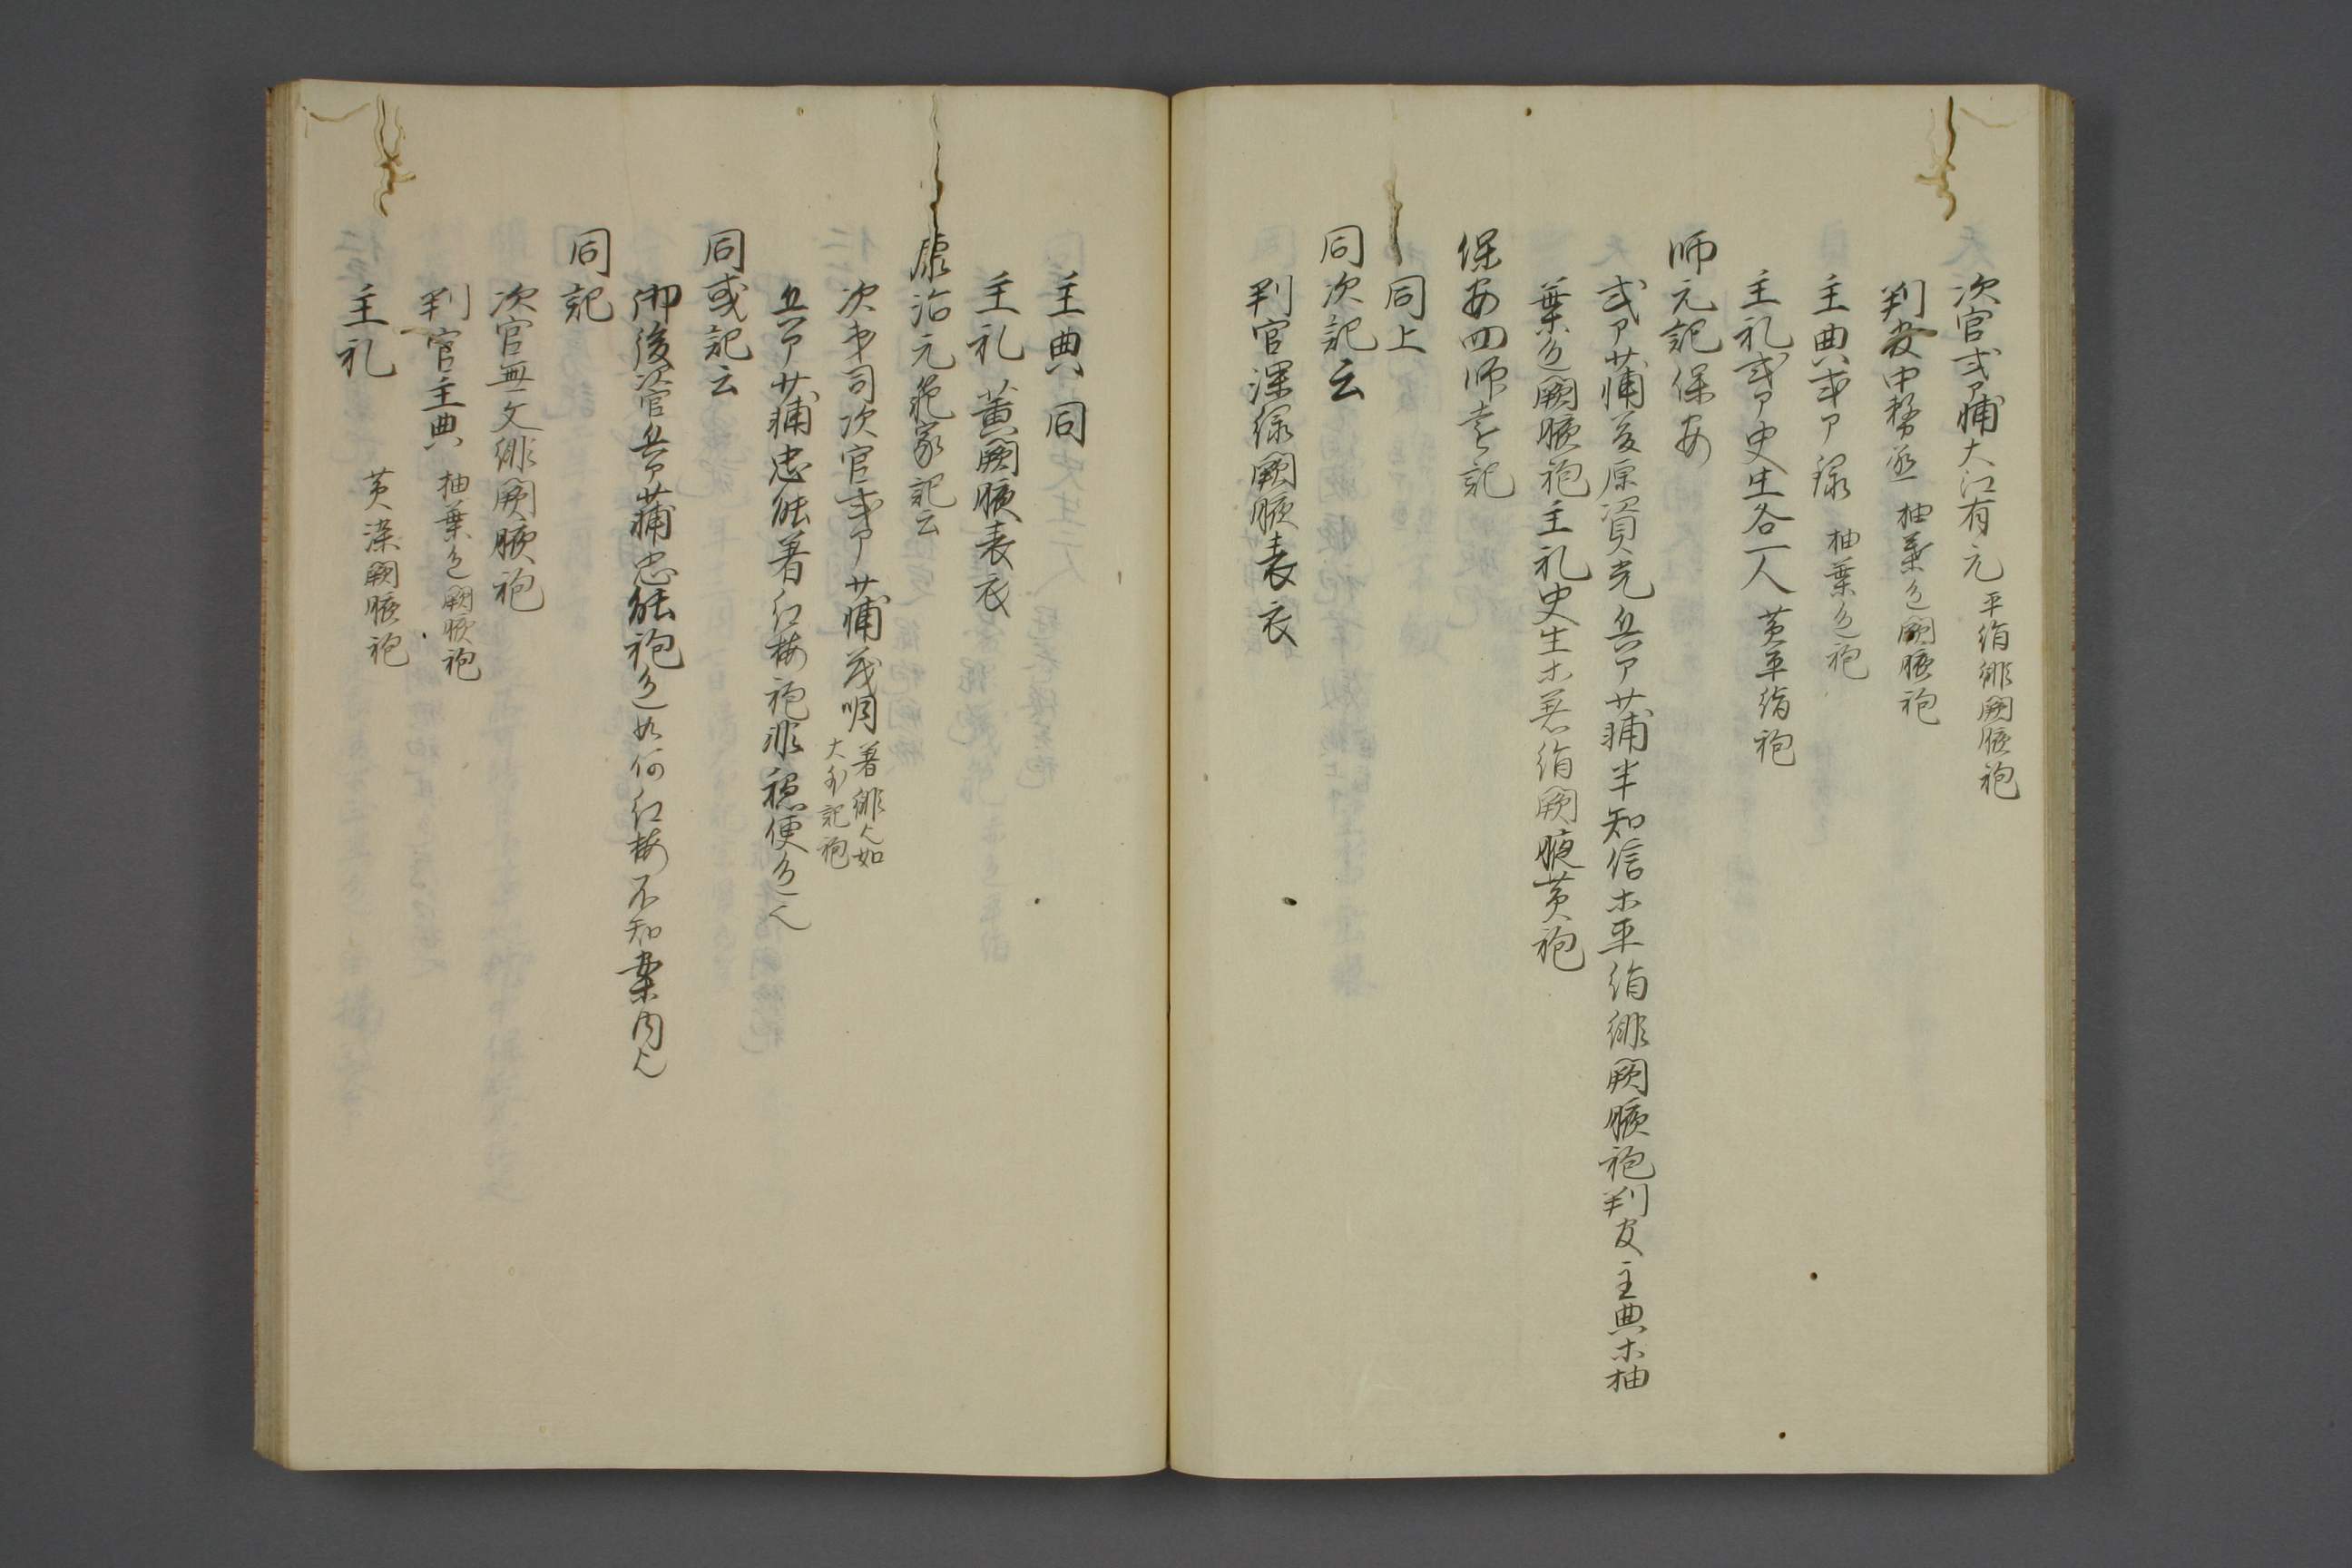 次官式ア輔大江有元 平絹緋闕腋袍
判官中務丞 柚葉色闕腋袍
主典式ア録 柚葉色袍
主礼式ア史生各一人 黄平絹袍
師元記保安
式ア少輔藤原資光兵ア少輔平知信ホ平絹緋闕腋袍判官主典ホ柚
葉色闕腋袍主礼史生ホ着絹闕腋黄袍
保安四師遠記
同上
同次記云
判官深緑闕腋表衣
主典 同
主礼 黄闕腋表衣
康治元範家記云
次第司次官式ア少輔茂明 着緋也如
大外記袍
兵ア少輔忠能着紅梅袍非穏便色也
同或記云
御後次官兵ア少輔忠能袍色如何紅梅不知案内也
同記
次官無文緋闕腋袍
判官主典 柚葉色闕腋袍
主礼 黄深闕腋袍